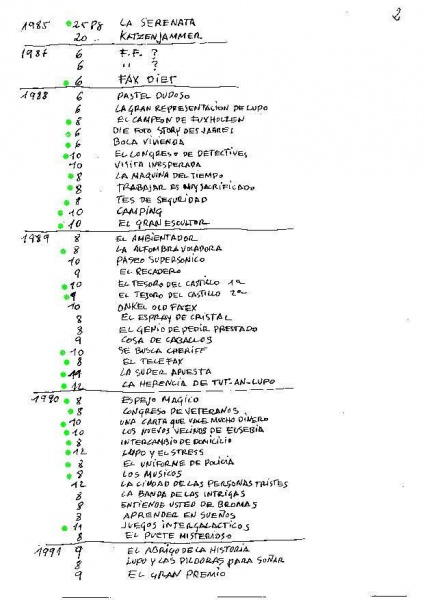 2
1985 25 Pg LA SERENATA
20 .. KATZENJAMMER
1987 6 F.F. ?
6 " ?
6 FAX DIET
1988 6 PASTEL DUDOSO
6 LA GRAN REPRESENTACION DE LUPO
8 EL CAMPEON DE FUXHOLZEN
6 DIE FOTO STORY DES JAHRES
6 BOLA VIVIENDA
10 EL CONGRESO DE DETECTIVES
10 VISITA INESPERADA
8 LA MAQUINA DEL TIEMPO
8 TRABAJAR ES MUY SACRIFICADO
8 TES DE SEGURIDAD
10 CAMPING
10 EL GRAN ESCULTOR
1989 8 EL AMBIENTADOR
8 LA ALFOMBRA VOLADORA
10 PASEO SUPERSONICO
9 EL RECADERO
10 EL TESORO DEL CASTILLO 1a
9 EL TESORO DEL CASTILLO 2a
10 ONKEL OLD FAXEX
8 EL ESPRAY DE CRISTAL
8 EL GENIO DE PEDIR PRESTADO
9 COSA DE CABALLOS
10 SE BUSCA CHERIFF
8 EL TELEFAX
11 LA SUPER APUESTA
12 LA HERENCIA DE TUT-AN-LUPO
1990 8 ESPEJO MAGICO
8 CONGRESO DE VETERANOS
10 UNA CARTA QUE VALE MUCHO DINERO
10 LOS NUEVOS VECINOS DE EUSEBIA
8 INTERCAMBIO DE DOMICILIO
12 LUPO Y EL STRESS
8 EL UNIFORME DE POLICIA
8 LOS MUSICOS
12 LA CIUDAD DE LAS PERSONAS TRISTES
8 LA BANDA DE LAS INTRIGAS
8 ENTIENDE USTED DE BROMAS
8 APRENDER EN SUEÑOS
11 JUEGOS INTERGALACTICOS
8 EL PUETE MISTERIOSO
1991 9 EL ABRIGO DE LA HISTORIA
8 LUPO Y LAS PILDORAS PARA SOÑAR
9 EL GRAN PREMIO